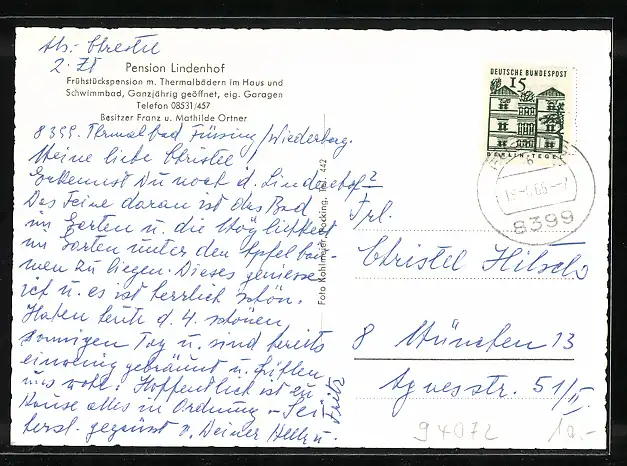 Abs. Christel
z. Zt
Pension Lindenhof
Frühstückspension m. Thermalbädern im Haus und
Schwimmbad, Ganzjährig geöffnet, eig. Garagen
Telefon 08531/457
Besitzer Franz u. Mathilde Ortner
8399. Thermalbad Füssing/
Meine liebe Christel!
Erkennst Du noch d. Lindenhof?
Das Feine daran ist das Bad
im Garten u. die Möglichkeit
im Garten unter den Apfelbäu-
men zu liegen. Dieses geniesse
ich u. es ist herrlich schön.
Haben heute d. 4. schönen
sonnigen Tag u. sind bereits
ein wenig gebräunt u. fühlen
uns wohl. Hoffentlich ist zu
Hause alles in Ordnung – Sei
herzl. gegrüsst v. Deiner u.
Fritz
Foto Kohlmeier, Pocking, Tel. 442
DEUTSCHE BUNDESPOST
15
BERLIN-TEGEL
8399
Frl.
Christel Hilsch
8 München 13
Agnesstr. 51/II
94072
10.-